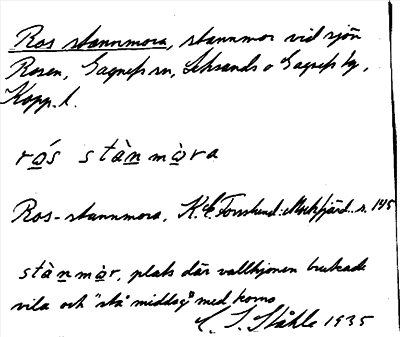 Ros stannmora, stannmor vid sjön
Rosen, Gagnefs sn, Leksands o Gagnefs tg,
Kopp. l.
rós stànmòra
Ros-stannmora, K.E. Forsslund: Mockfjärd. s. 145
stànmòr, plats där vallhjonen brukade
vila och "stå middag" med korna
C. I. Ståhle 1935